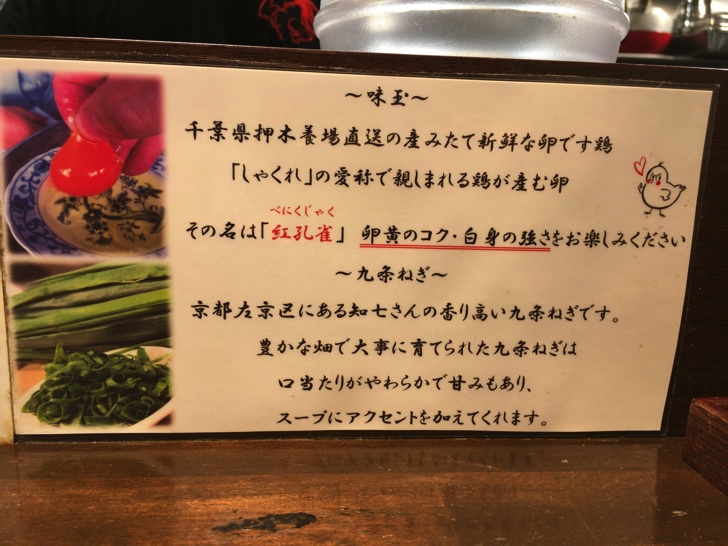 ～味玉～
千葉県押木養場直送の産みたて新鮮な卵です鶏
「しゃくれ」の愛称で親しまれる鶏が産む卵
べにくじゃく
その名は「紅孔雀」 卵黄のコク・白身の強さをお楽しみください
～九条ねぎ～
京都左京区にある知七さんの香り高い九条ねぎです。
豊かな畑で大事に育てられた九条ねぎは
口当たりがやわらかで甘みもあり、
スープにアクセントを加えてくれます。